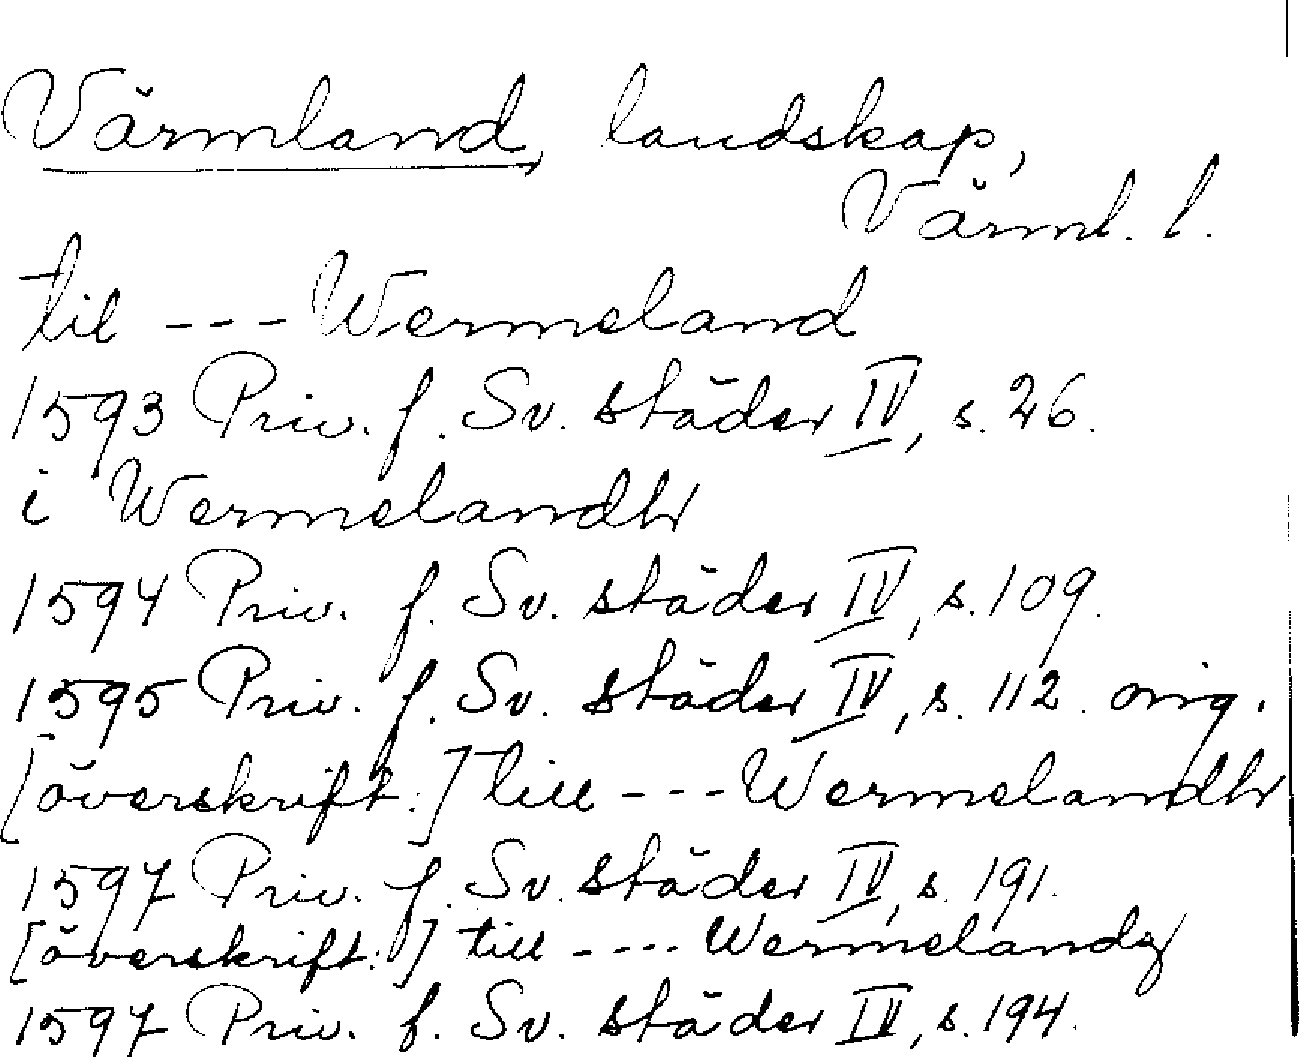 Värmland, landskap,
Värml. l.
til --- Wermeland
1593 Priv. f. Sv. städer IV, s. 26.
i Wermelandh
1594 Priv. f. Sv. städer IV, s. 109.
1595 Priv. f. Sv. städer IV, s. 112. orig.
[överskrift:] till --- Wermelandh
1597 Priv. f. Sv. städer IV, s. 191.
[överskrift:] till ---- Wermelandz
1597 Priv. f. Sv. städer IV, s. 194.